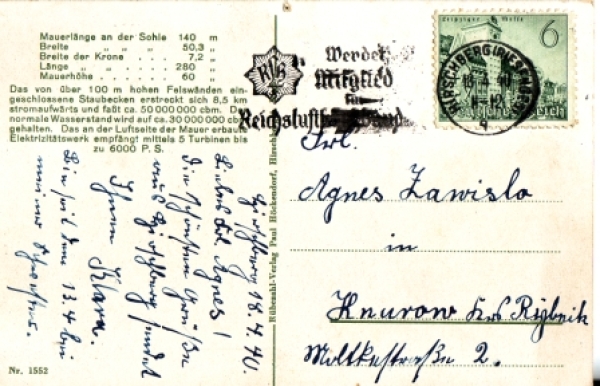 Mauerlänge an der Sohle 140 m
Breite „ „ „ 50,3 „
Breite der Krone . . 7,2 „
Länge „ „ . . 280 „
Mauerhöhe . . . . . 60 „
Das von über 100 m hohen Felswänden ein-
geschlossene Staubecken erstreckt sich 8,5 km
stromaufwärts und faßt ca. 50 000 000 cbm. Der
normale Wasserstand wird auf ca. 30 000 000 cbm
gehalten. Das an der Luftseite der Mauer erbaute
Elektrizitätswerk empfängt mittels 5 Turbinen bis
zu 6000 P. S.
Hirschberg 18.4.40.
Liebes Frl. Agnes!
Die schönsten Grüße
aus Hirschberg sendet
Ihnen Klara.
Bin seit dem 13.4 bei
meiner Schwester.
Nr. 1552
Rübezahl-Verlag Paul Höckendorf, Hirschb
RLB
Werdet
Mitglied
im
Reichsluftschutzbund
Leipziger Messe
6
HIRSCHBERG (RIESENGEB)
18.4.40
reich
Frl.
Agnes Zawislo
in
Knurow Krs Rybnik
Moltkestraße 2.